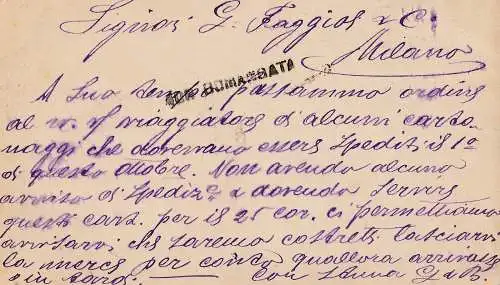 Signori G. Faggios & C.
Milano
A Suo tempo passammo ordine
al vs. viaggiatore d'alcuni carto-
naggi che dovevano essere spediti il 1°
di questo ottobre. Non avendo alcuno
avviso di spediz.e e dovendo servire
questi cart. per il 25 cor. ci permettiamo
avvisarvi che saremo costretti lasciarvi
la merce per conto qualora arrivasse
in tardo. Con stima G & B.